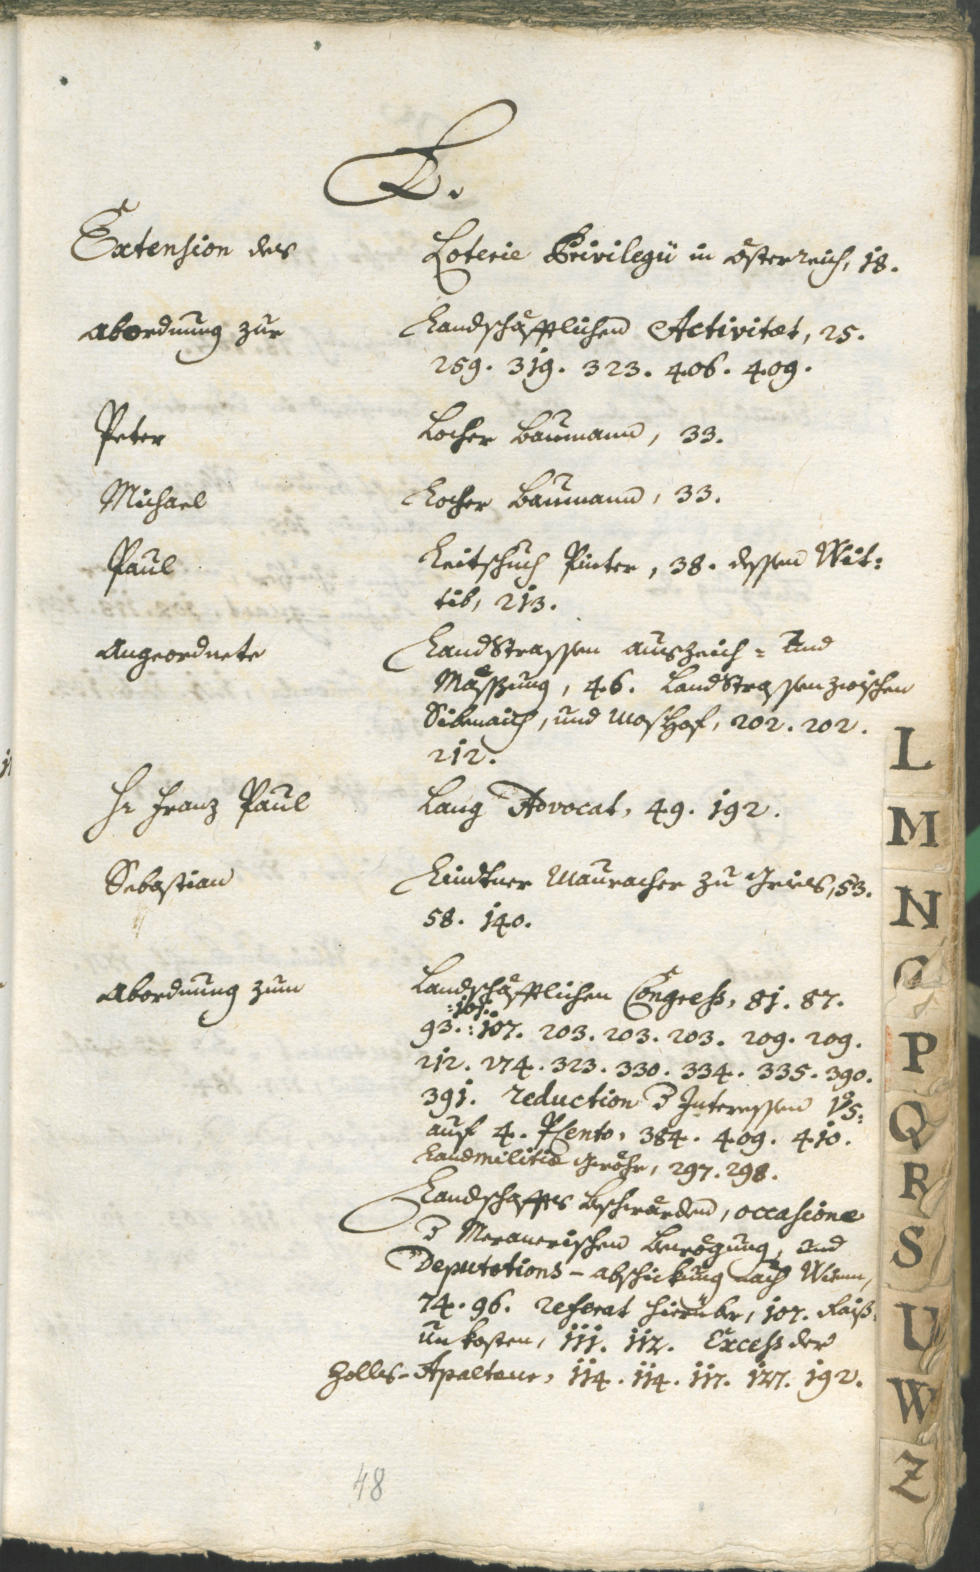 L.
Extension des Loterie Privilegii in Österreich, 18.
Abordnung zur Landschäfftlichen Activitæt, 25.
259. 319. 323. 406. 409.
Peter Locher Baumann, 33.
Michael Locher Baumann, 33.
Paul Leitschuch Pinter, 38. dessen Wit:
tib, 213.
Angeordnete LandStrassen auszeich- und
Mässung, 46. LandStrassen zwischen
Sibenaich, und Moshof, 202. 202.
212.
Hr Franz Paul Lang Advocat, 49. 192.
Sebastian Lindtner Mauracher zu Gries, 53.
58. 140.
Abordnung zum Landschäfftlichen Congress, 81. 87.
:101.:
93. 107. 203. 203. 203. 209. 209.
212. 274. 323. 330. 334. 335. 390.
391. reduction d Interessen v 5.
auf 4. PCento, 384. 409. 410.
Landmilitiæ 297. 298.
Landschaffts Beschwärden, occasione
d Meranerischen Bewögung, und
Deputations-abschickung nach Wienn,
74. 96. referat hierüber, 107. Raiß
unkosten, 111. 112. Excess der
Zolls-Apaltane, 114. 114. 117. 127. 192.
48
L
M
N
P
Q
R
S
U
W
Z